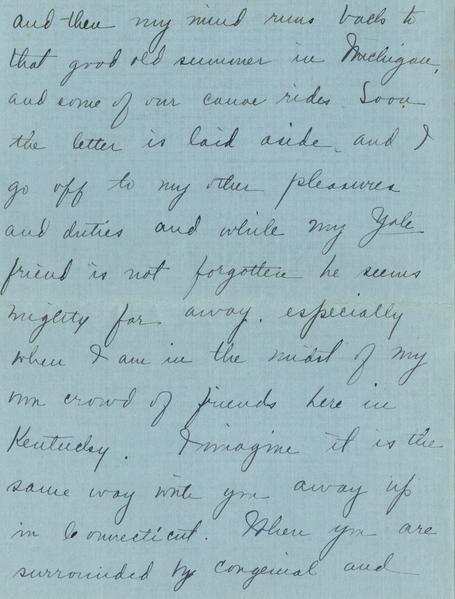 and then my mind runs back to
that good old summer in Michigan,
and some of our canoe rides. Soon
the letter is laid aside, and I
go off to my other pleasures
and duties and while my Yale
friend is not forgotten he seems
mighty far away, especially
when I am in the midst of my
own crowd of friends here in
Kentucky. I imagine it is the
same way with you away up
in Connecticut. When you are
surrounded by congenial and